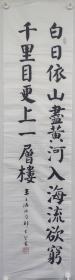 白日依山盡黄河入海流欲窮
千里目更上一層樓